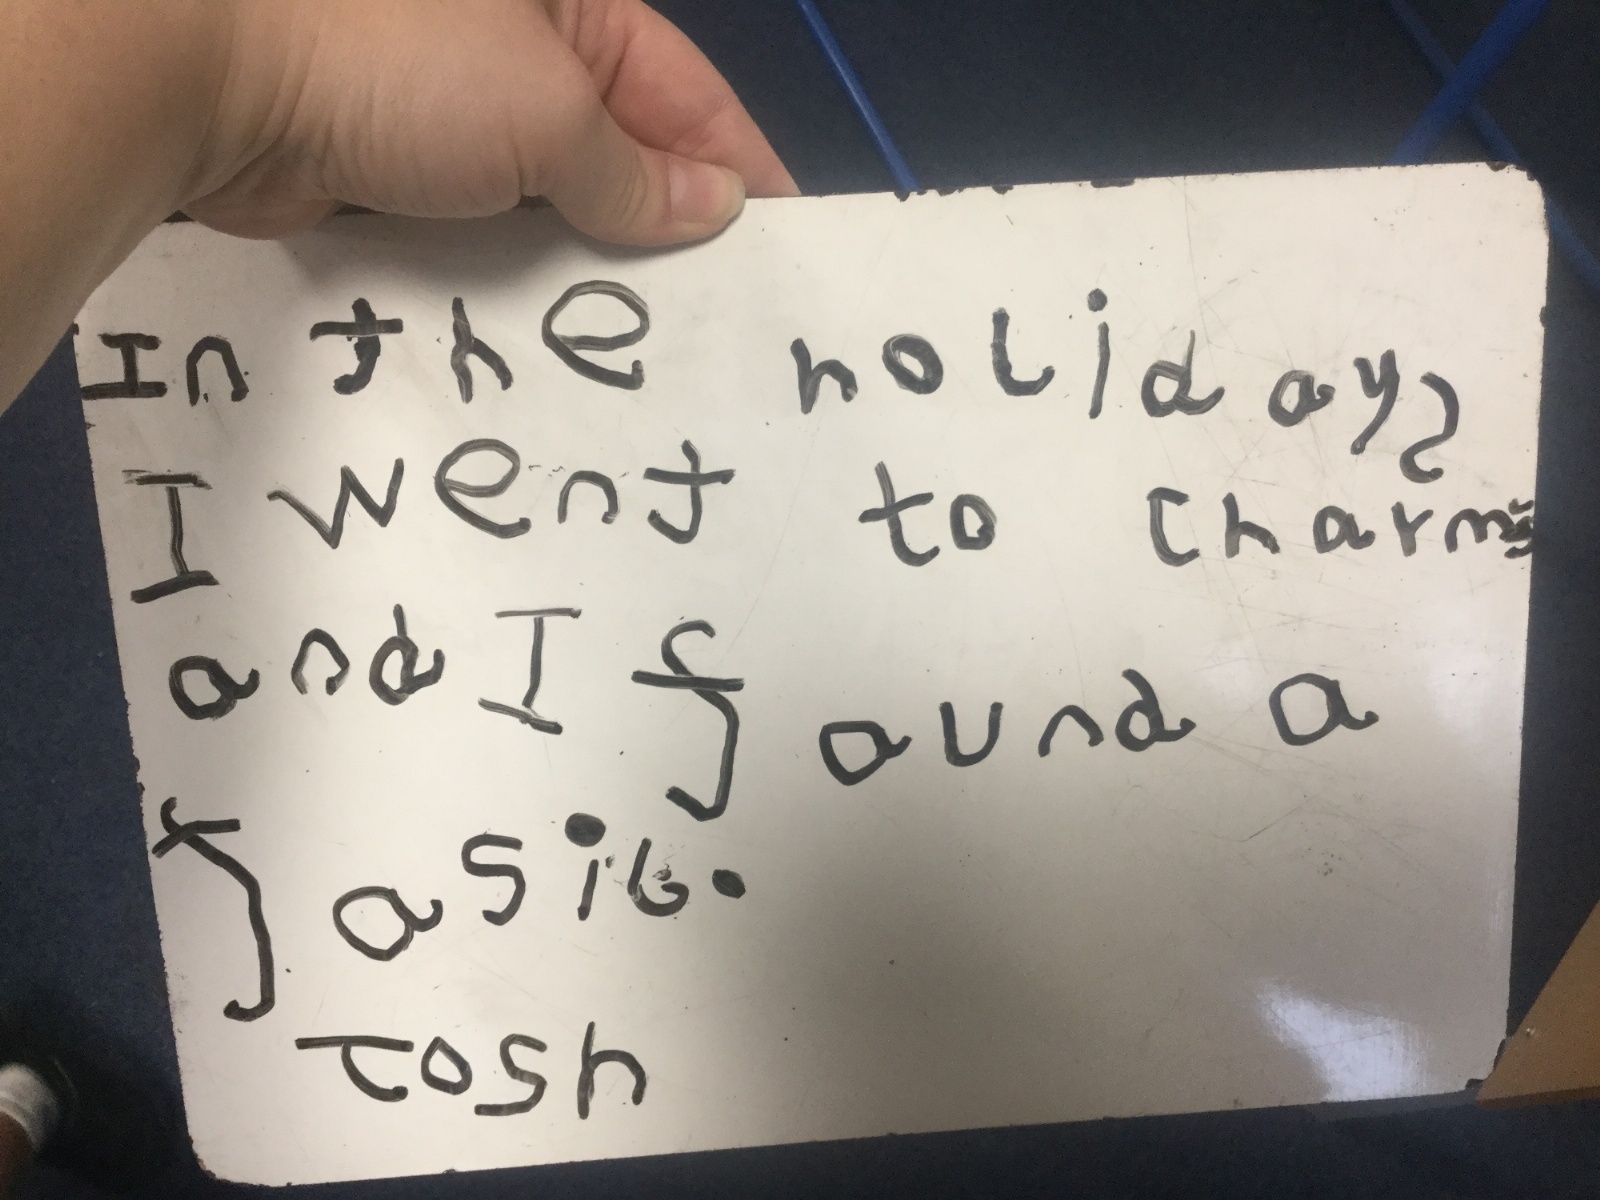 In the holidays
I went to charm
and I faund a
fasil.
Tosh